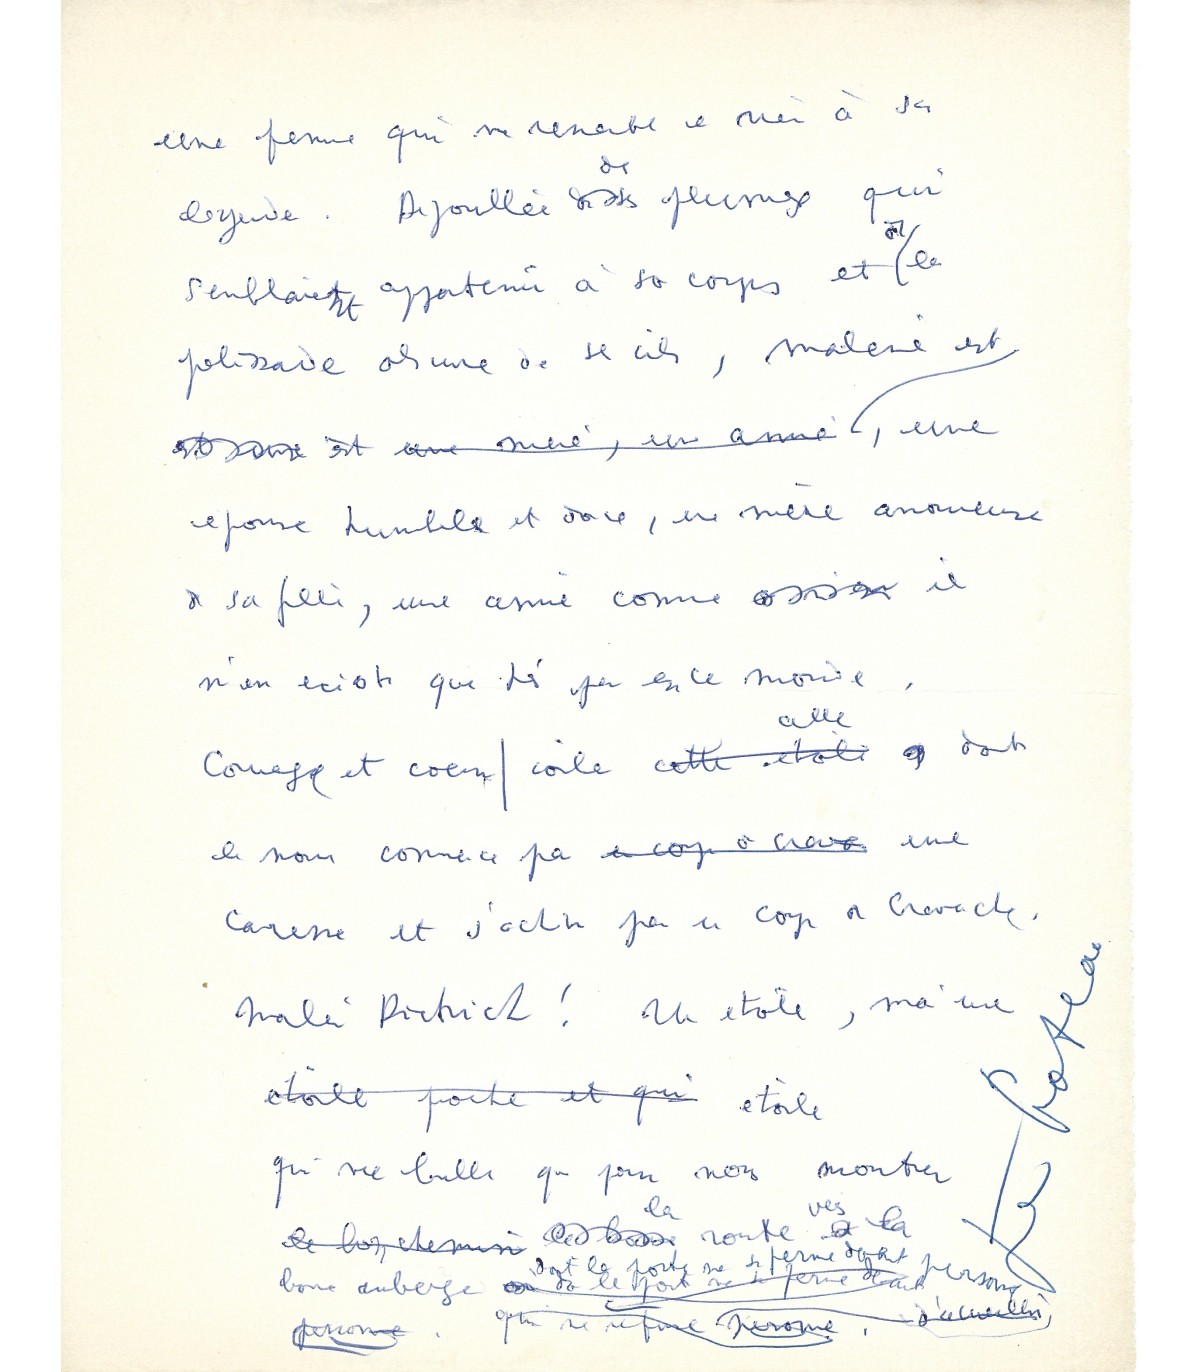 une femme qui ne ressemble en rien à sa
légende. Dépouillée de plumes qui
semblaient appartenir à son corps et de la
palissade obscure de ses cils, Marlene est
est une mère, une amie, une
épouse humble et douce, une mère amoureuse
de sa fille, une amie comme il
n'en existe que très peu en ce monde.
Courage et coeur voilà celle cette étoile dont
le nom commence par un coup de cravache une
caresse et s'achève par un coup de cravache.
Marlène Dietrich! Une étoile, mais une
étoile porte et qui étoile
qui ne brille que pour nous montrer
le bon chemin la route vers la
bonne auberge dont la porte ne se ferme devant personne
personne. qui ne refuse personne. d'accueillir